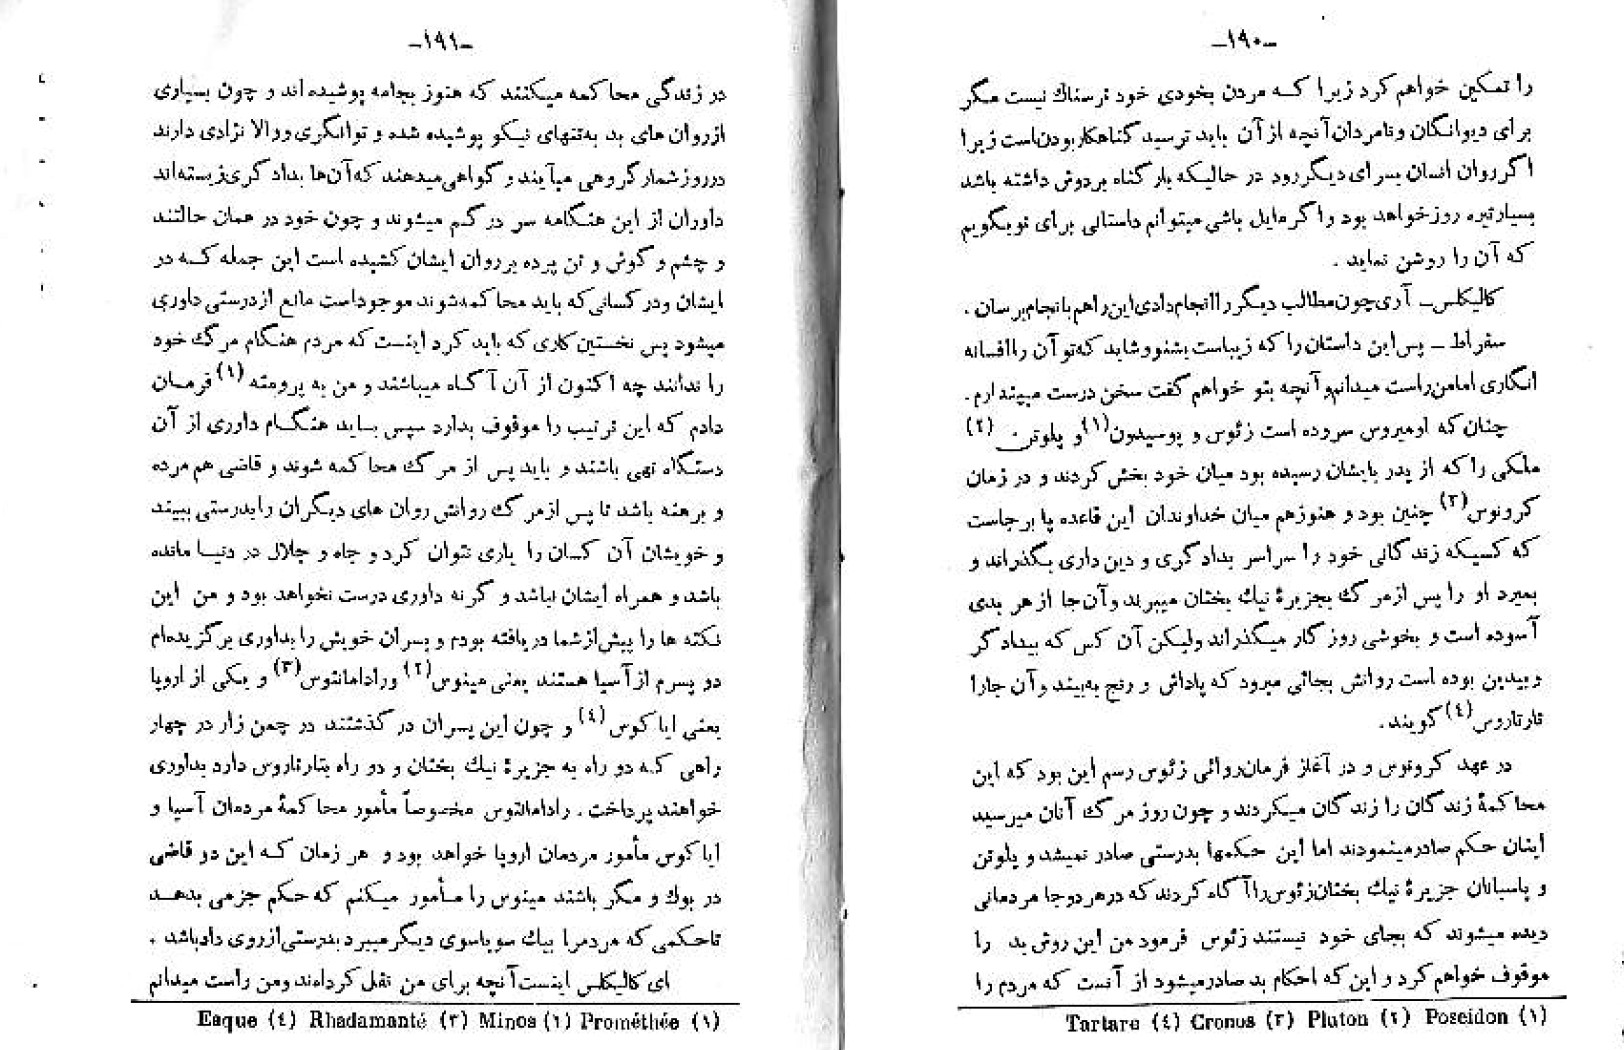 -۱۹۰-
را تمکین خواهم کرد زیرا کـه مردن بخودی خود ترسناك نیست مگر
برای دیوانگان و نامردان آنچه از آن باید ترسید گناهکار بودن است زیرا
اگر روان انسان بسرای دیگر رود در حالیکه بار گناه بردوش داشته باشد
بسیار تیره روز خواهد بود و اگر مایل باشی میتوانم داستانی برای تو بگویم
که آن را روشن نماید .
کالیکلس ـ آری چون مطالب دیگر را انجام دادی این را هم بانجام برسان .
سقراط ـ پس این داستان را که زیباست بشنو و شاید که تو آن را افسانه
انگاری اما من راست میدانم و آنچه بتو خواهم گفت سخن درست میپندارم .
چنان که اومیروس سروده است زئوس و پوسیدون(۱) و پلوتن (۲)
ملکی را که از پدر بایشان رسیده بود میان خود بخش کردند و در زمان
کرونوس(۳) چنین بود و هنوز هم میان خداوندان این قاعده پا برجاست
که کسیکه زندگانی خود را سراسر بدادگری و دین داری بگذراند و
بمیرد او را پس از مرگ بجزیرۀ نیك بختان میبرند و آن جا از هر بدی
آسوده است و بخوشی روزگار میگذراند ولیکن آن کس که بیدادگر
و بیدین بوده است روانش بجائی میرود که پاداش و رنج به بیند و آن جا را
تارتاروس(٤) گویند .
در عهد کرونوس و در آغاز فرمانروائی زئوس رسم این بود که این
محاکمۀ زندگان را زندگان میکردند و چون روز مرگ آنان میرسید
ایشان حکم صادر مینمودند اما این حکمها بدرستی صادر نمیشد و پلوتن
و پاسبانان جزیرۀ نیك بختان زئوس را آگاه کردند که در هر دو جا مردمانی
دیده میشوند که بجای خود نیستند زئوس فرمود من این روش بد را
موقوف خواهم کرد و این که احکام بد صادر میشود از آنست که مردم را
(۱) Poseidon (۲) Pluton (۳) Cronos (٤) Tartare
-۱۹۱-
در زندگی محاکمه میکنند که هنوز بجامه پوشیده اند و چون بسیاری
از روان های بد به تنهای نیکو پوشیده شده و توانگری و والا نژادی دارند
در روز شمار گروهی میآیند و گواهی میدهند که آن ها بدادگری زیسته اند
داوران از این هنگامه سر در گم میشوند و چون خود در همان حالتند
و چشم و گوش و تن پرده بر روان ایشان کشیده است این جمله کـه در
ایشان و در کسانی که باید محاکمه شوند موجود است مانع از درستی داوری
میشود پس نخستین کاری که باید کرد اینست که مردم هنگام مرگ خود
را ندانند چه اکنون از آن آگـاه میباشند و من به پرومته(۱) فرمـان
دادم که این ترتیب را موقوف بدارد سپس بـاید هنگـام داوری از آن
دستگاه تهی باشند و باید پس از مرگ محاکمه شوند و قاضی هم مرده
و برهنه باشد تا پس از مرگ روانش روان های دیگران را بدرستی ببیند
و خویشان آن کسان را یاری نتوان کرد و جاه و جلال در دنیـا مانده
باشد و همراه ایشان نباشد و گر نه داوری درست نخواهد بود و من این
نکته ها را پیش از شما دریافته بودم و پسران خویش را بداوری برگزیده ام
دو پسرم از آسیا هستند یعنی مینوس(۲) و رادامانتوس(۳) و یکی از اروپا
یعنی ایاکوس(٤) و چون این پسران در گذشتند در چمن زار در چهار
راهی کـه دو راه به جزیرۀ نیك بختان و دو راه بتارتاروس دارد بداوری
خواهند پرداخت . رادامانتوس مخصوصاً مأمور محاکمۀ مردمان آسیا و
ایاکوس مأمور مردمان اروپا خواهد بود و هر زمان کـه این دو قاضی
در بوك و مگر باشند مینوس را مـأمور میکنم که حکم جزمی بدهـد
تا حکمی که مردم را بیك سو یا سوی دیگر میبرد بدرستی از روی داد باشد .
ای کالیکلس اینست آنچه برای من نقل کرده اند و من راست میدانم
(۱) Prométhée (۲) Minos (۳) Rhadamanté (٤) Eaque